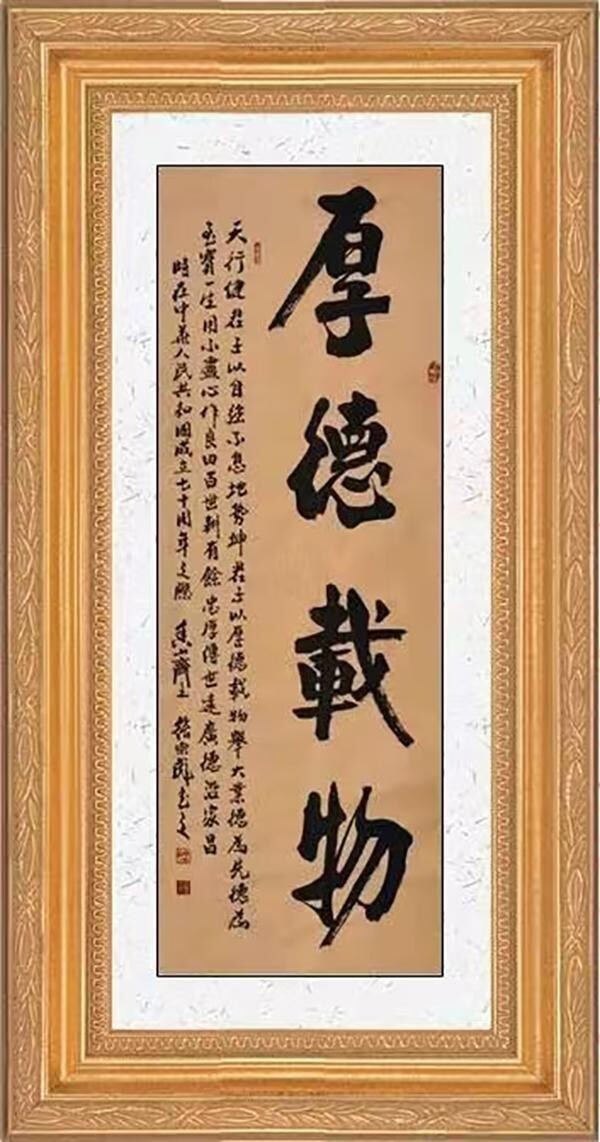 厚德載物
天行健君子以自强不息地势坤君子以厚德載物举大業德為先德為
至寶一生用不盡心作良田百世耕有餘忠厚傳世遠廣德治家昌
時在中華人民共和國成立七十周年之際 香山齋主